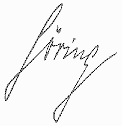 Göring